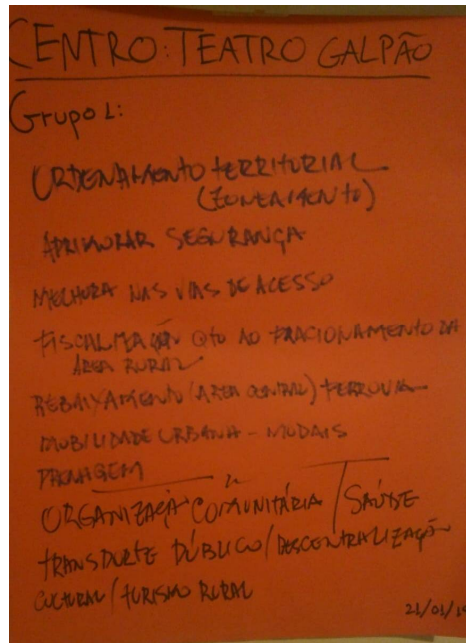 CENTRO: TEATRO GALPÃO
Grupo 1:
ORDENAMENTO TERRITORIAL
(ZONEAMENTO)
APRIMORAR SEGURANÇA
MELHORA NAS VIAS DE ACESSO
FISCALIZAÇÃO QTO AO FRACIONAMENTO DA
ÁREA RURAL
REBAIXAMENTO (ÁREA CENTRAL) FERROVIA
MOBILIDADE URBANA - MODAIS
ORGANIZAÇÃO COMUNITÁRIA / SAÚDE
TRANSPORTE PÚBLICO / DESCENTRALIZAÇÃO
CULTURAL / TURISMO RURAL